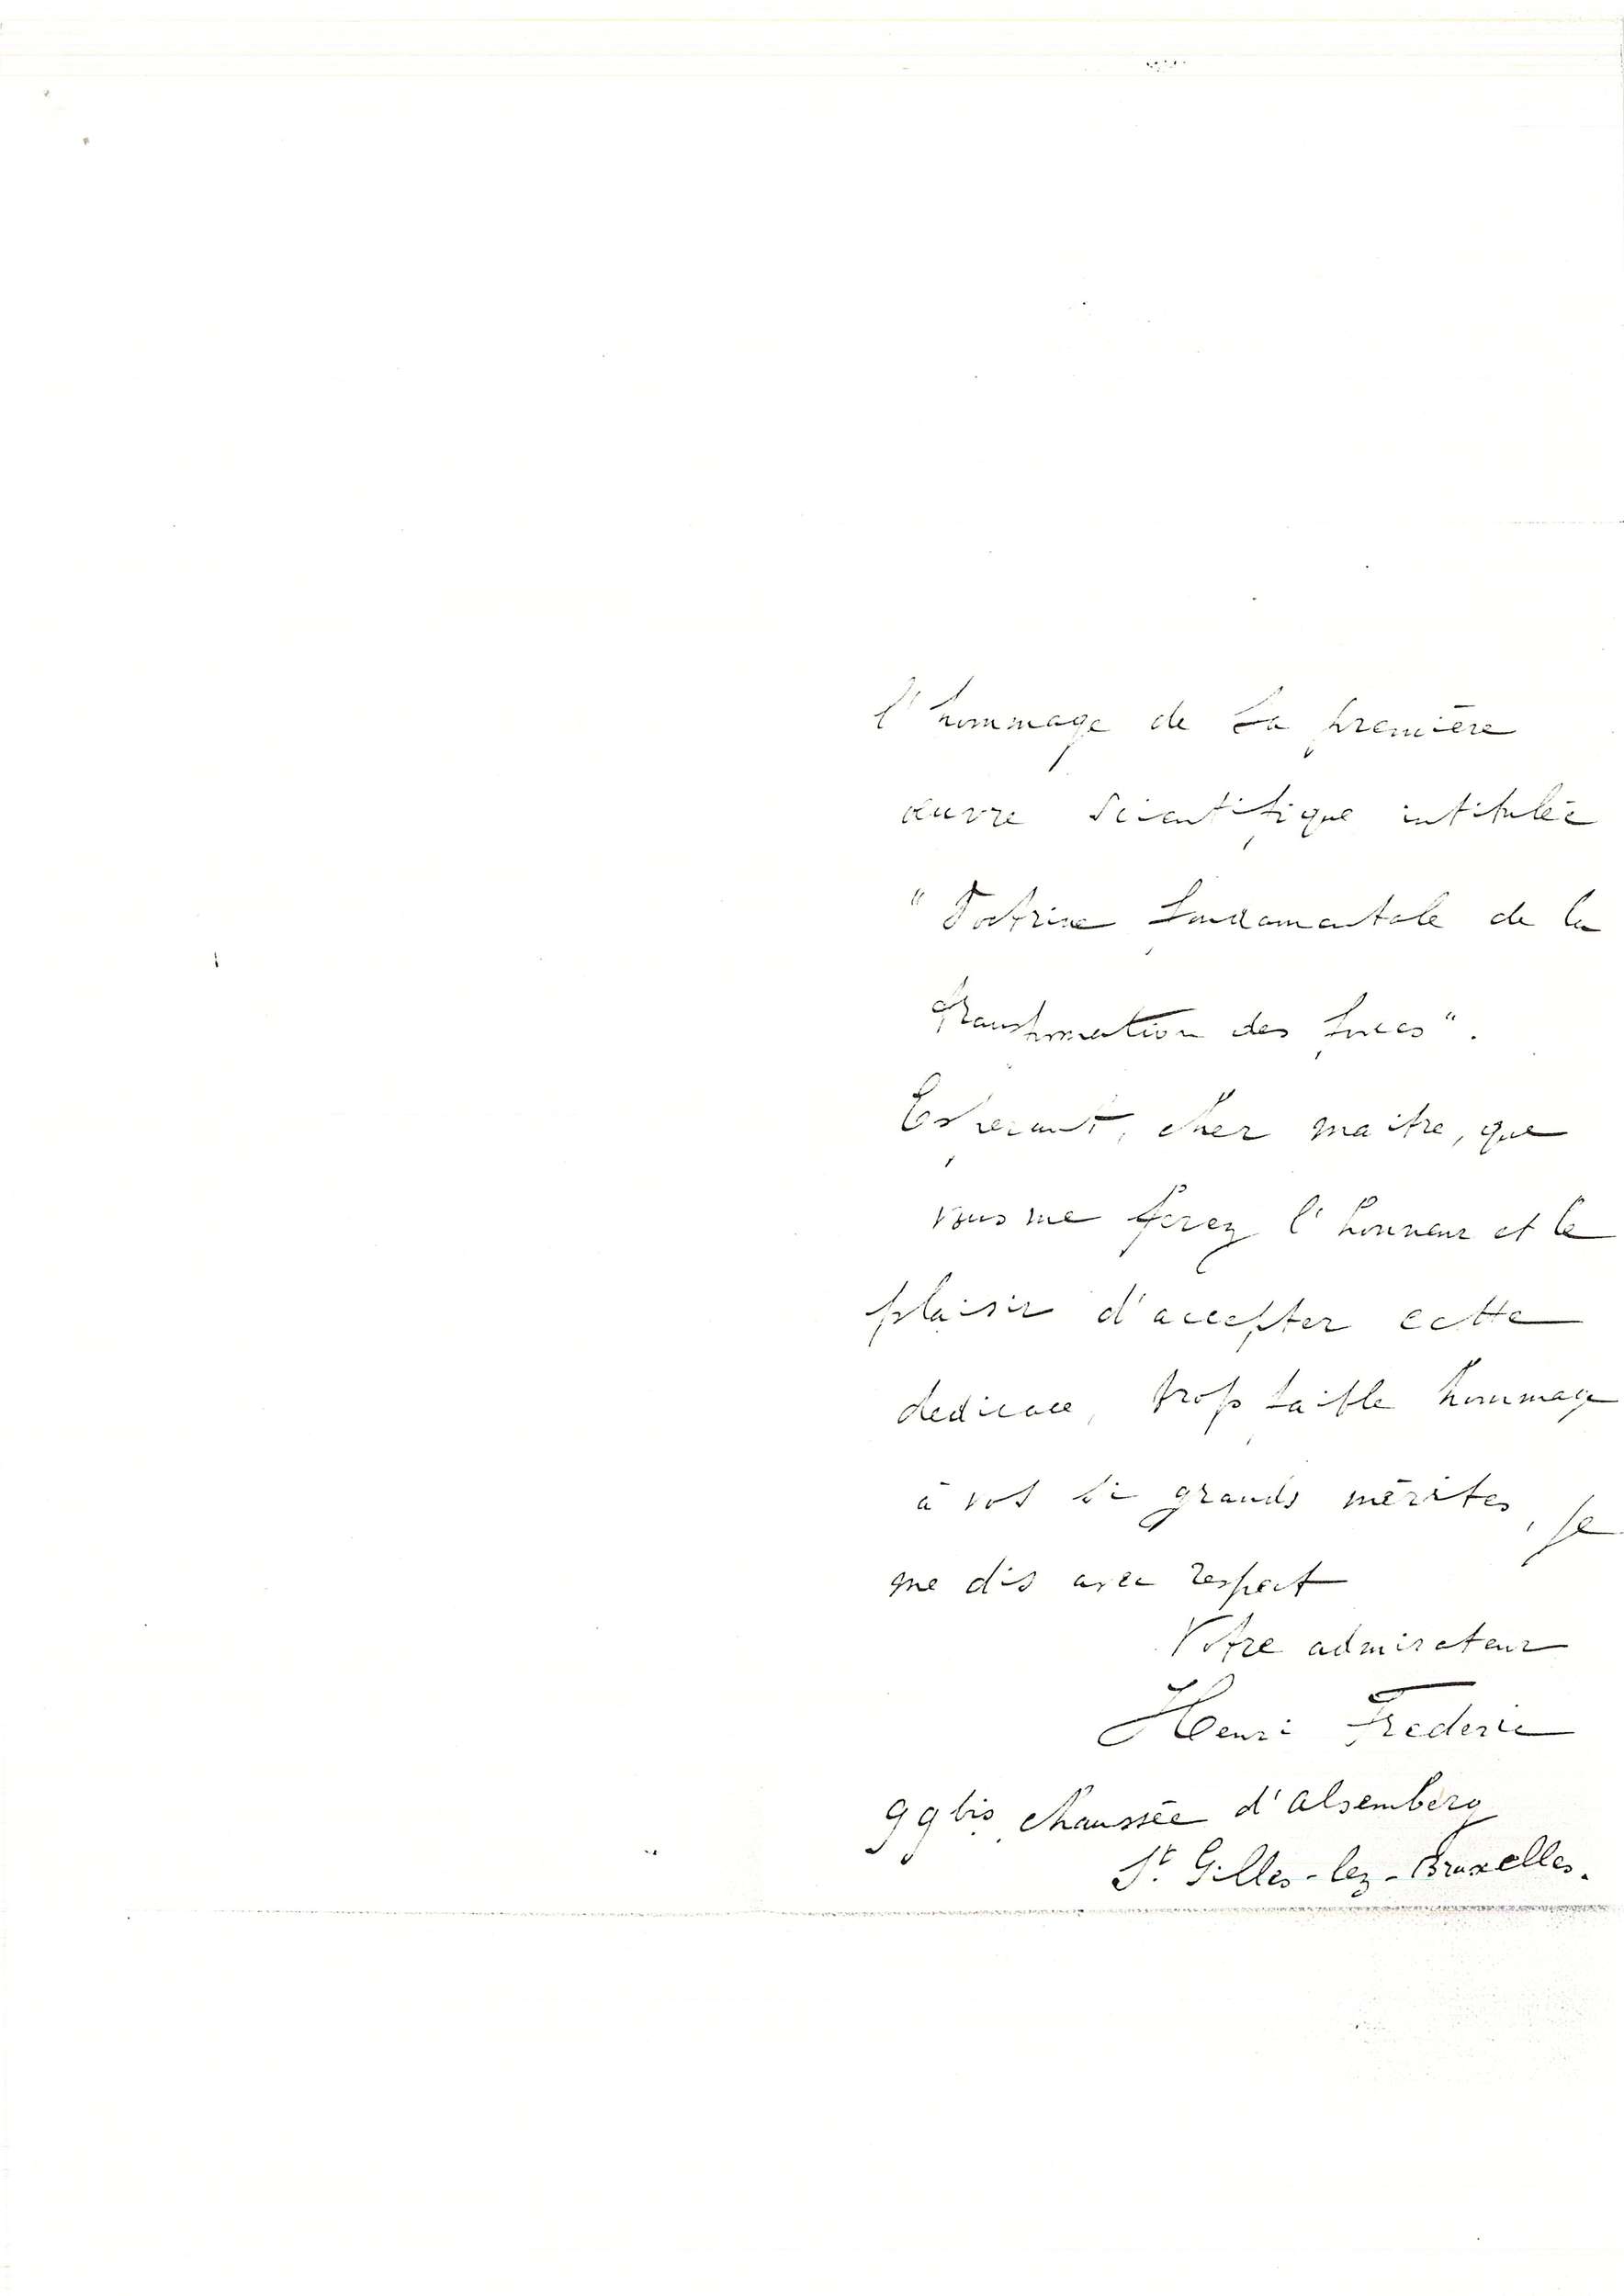 l'hommage de sa première
œuvre scientifique intitulée
"Doctrine fondamentale de la
transformation des forces".
Esperant, cher maitre, que
vous me ferez l'honneur et le
plaisir d'accepter cette
dedicace, trop faible hommage
à vos si grands mérites, je
me dis avec respect
Votre admirateur
Henri Frederic
99 bis chaussée d'Alsemberg
St. Gilles-lez-Bruxelles.